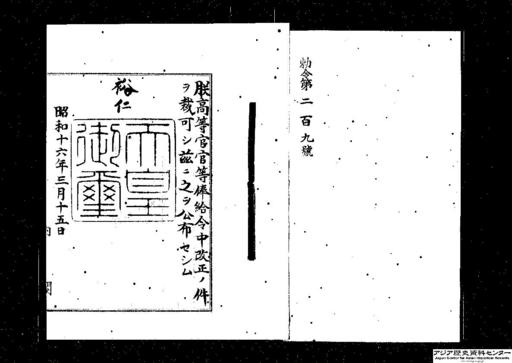 勅令第二百九號
朕高等官官等俸給令中改正ノ件
ヲ裁可シ茲ニ之ヲ公布セシム
裕仁
天皇御璽
昭和十六年三月十五日
内閣
アジア歴史資料センター
Japan Center for Asian Historical Records